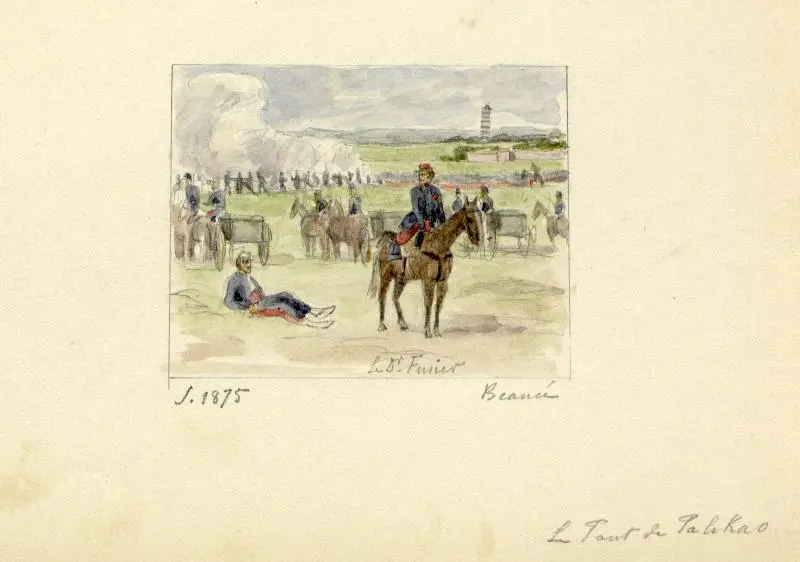 Le Dr. Fusier
S. 1875
Beaucé
Le Pont de Palikao